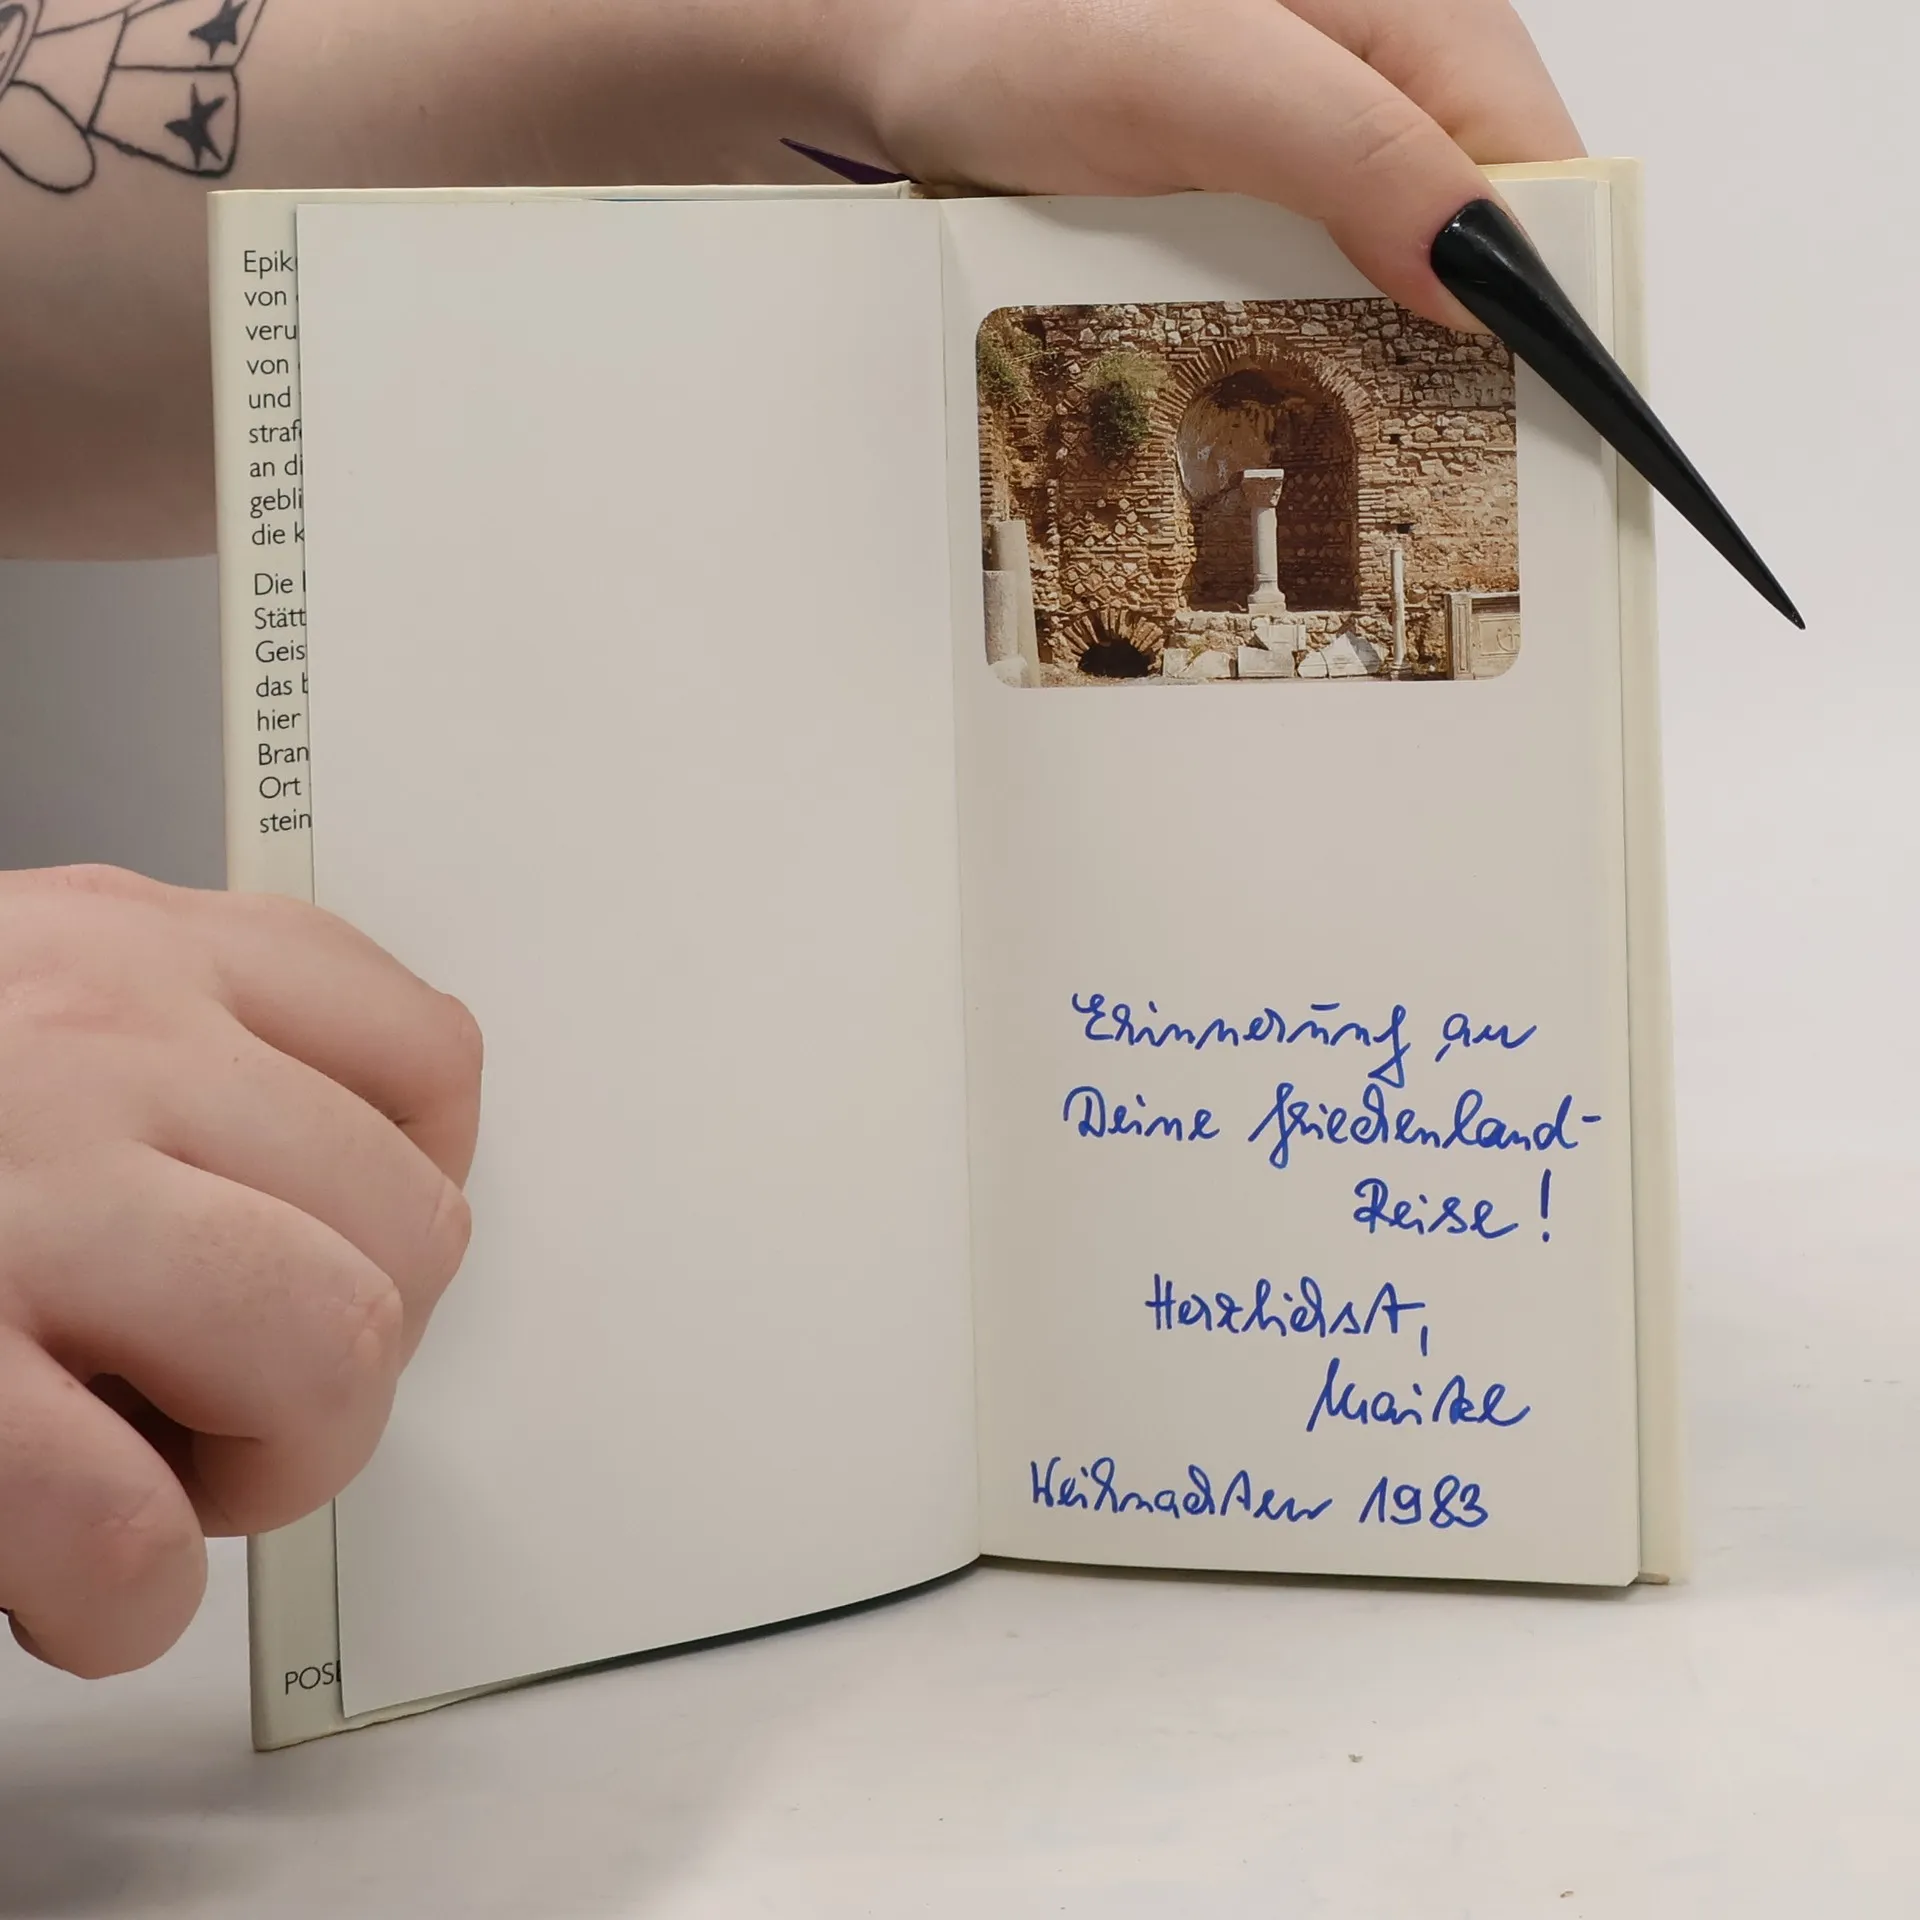 Epik
von
veru
von
und
straf
an di
gebli
die k
Die
Stätt
Geis
das b
hier
Bran
Ort
stein
POSE
Erinnerung an
Deine Griechenland-
Reise!
Herzlichst,
Weihnachten 1983